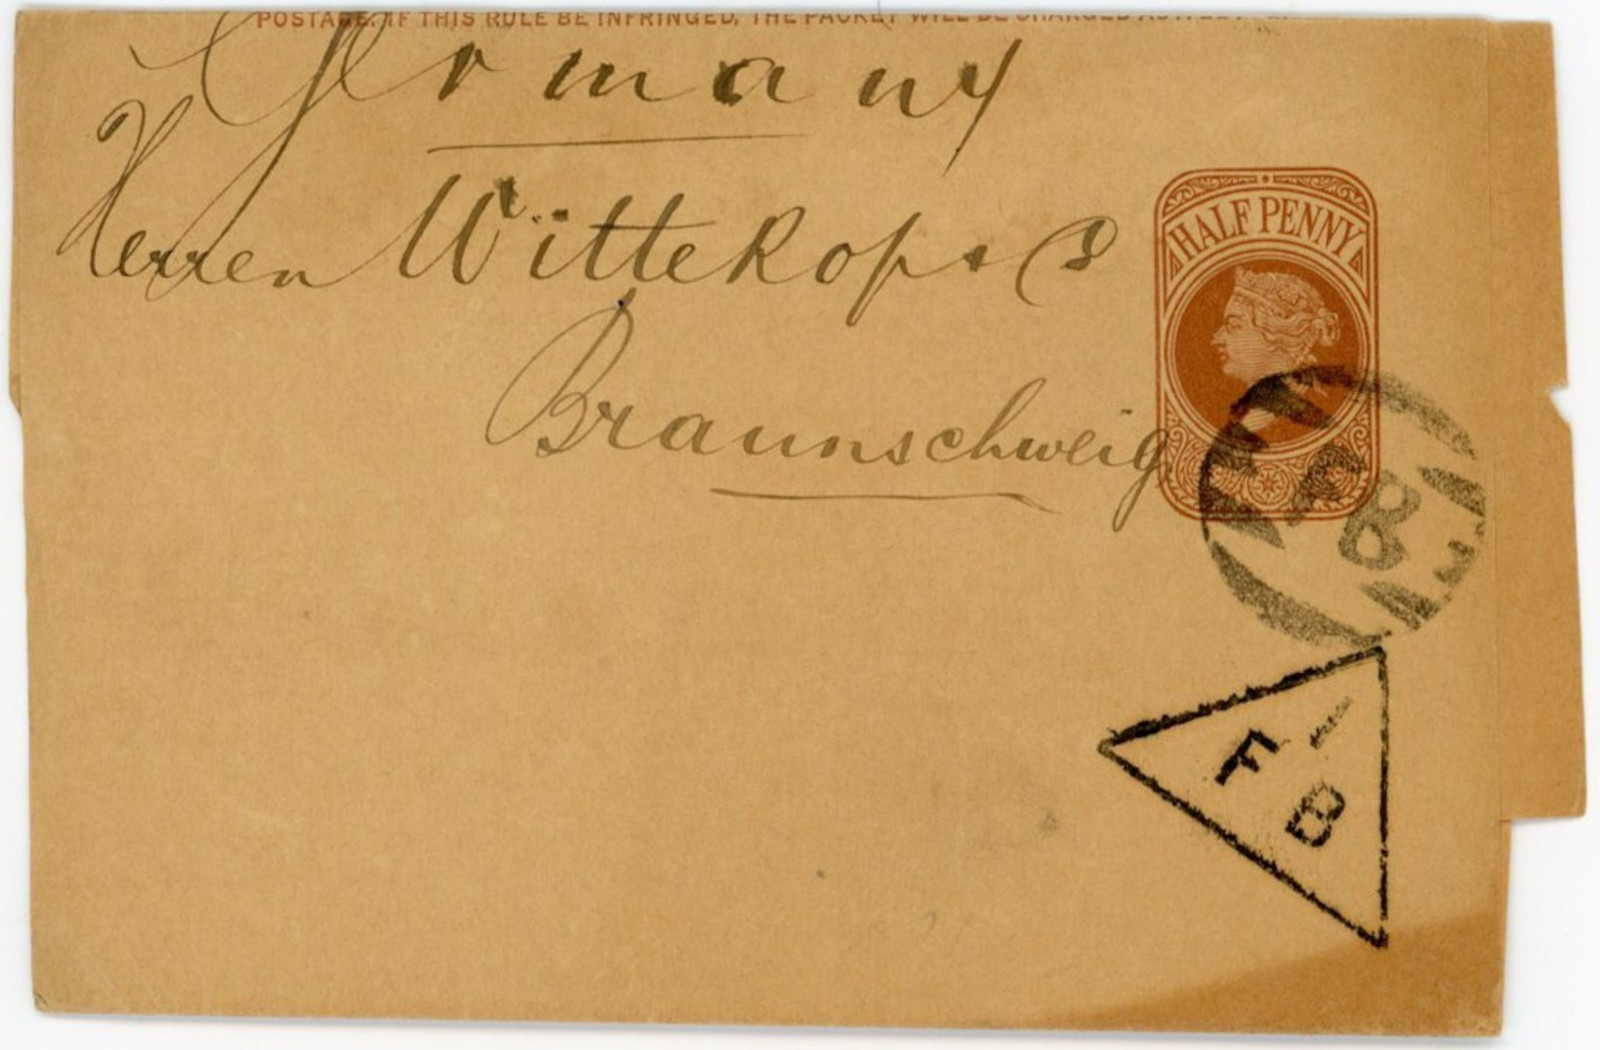 POSTAGE. IF THIS RULE BE INFRINGED, THE PACKET WILL BE CHARGED AS A
Germany
Herren Wittekop & C
Braunschweig
HALF PENNY
8
F
B